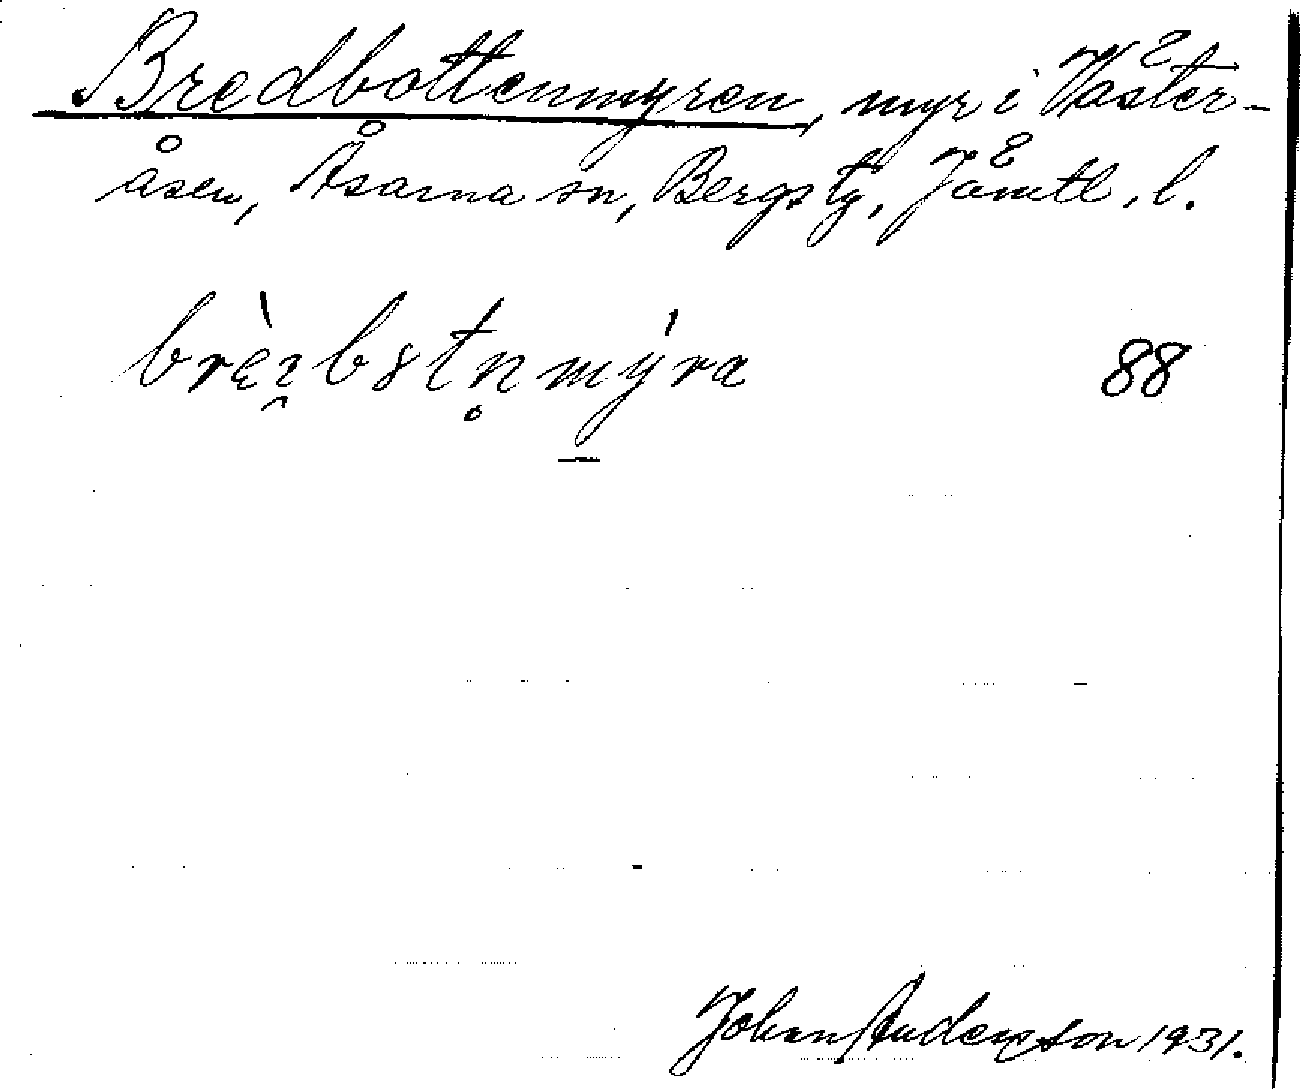 Bredbottenmyren, myr i Väster-
åsen, Åsarna sn, Bergs tg, Jämtl. l.
88
Johan Anderson 1931.